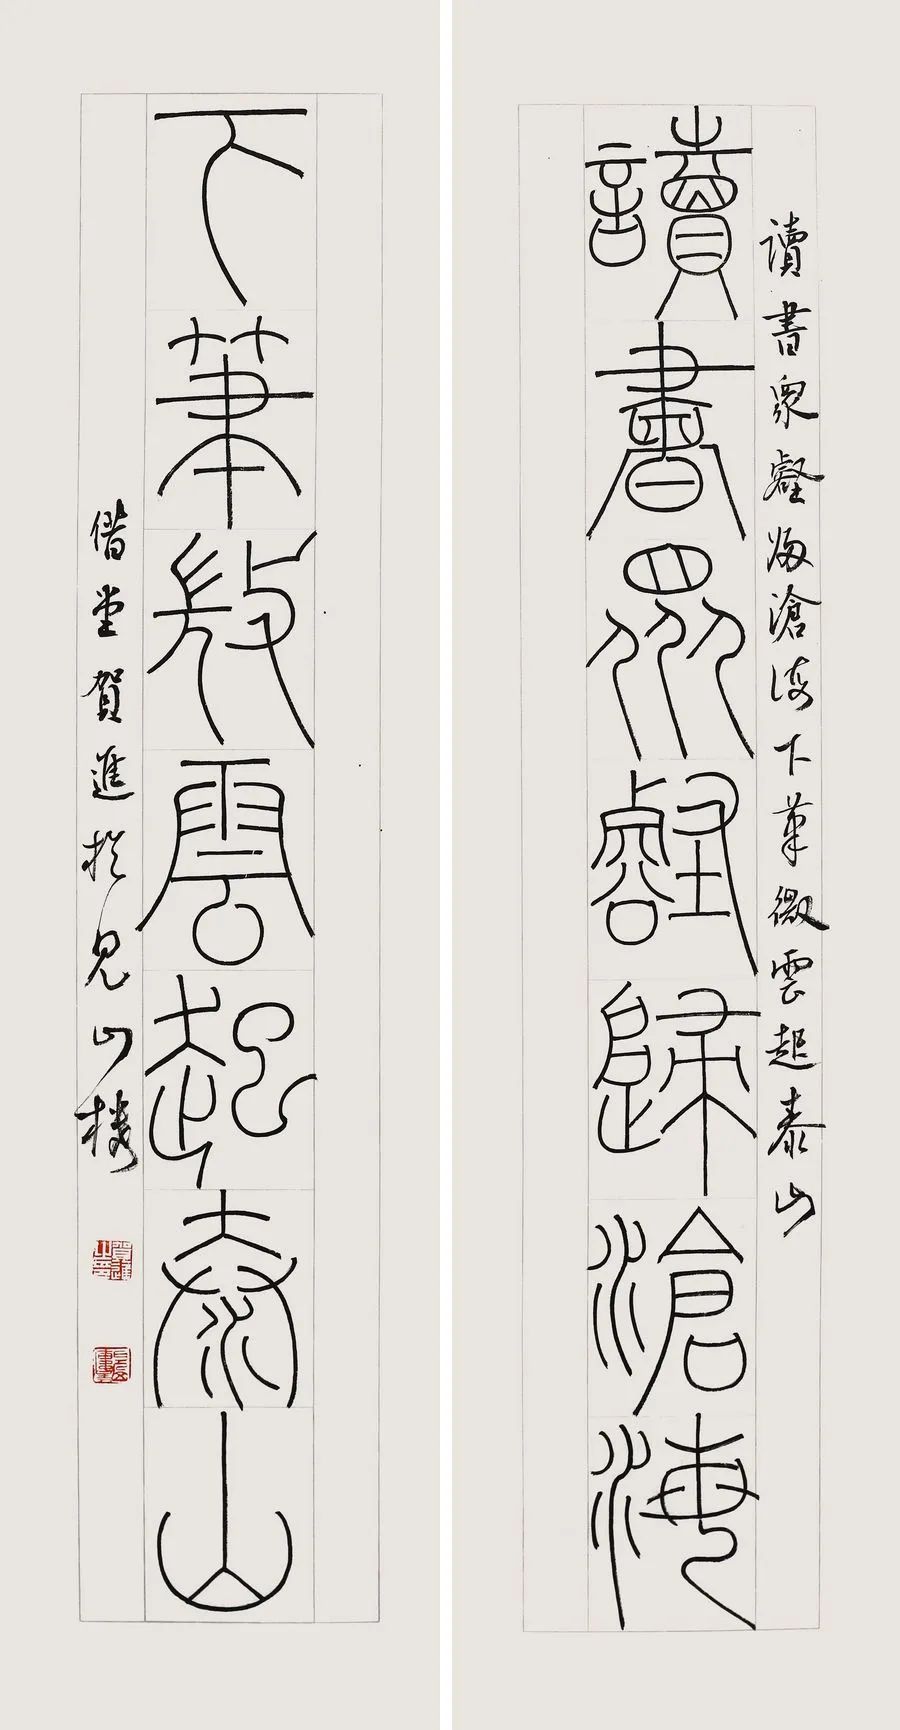 讀書眾壑歸滄海
下筆𢼸雲起泰山
讀書眾壑歸滄海下筆微雲起泰山
借堂賀進於見山樓
賀進之印